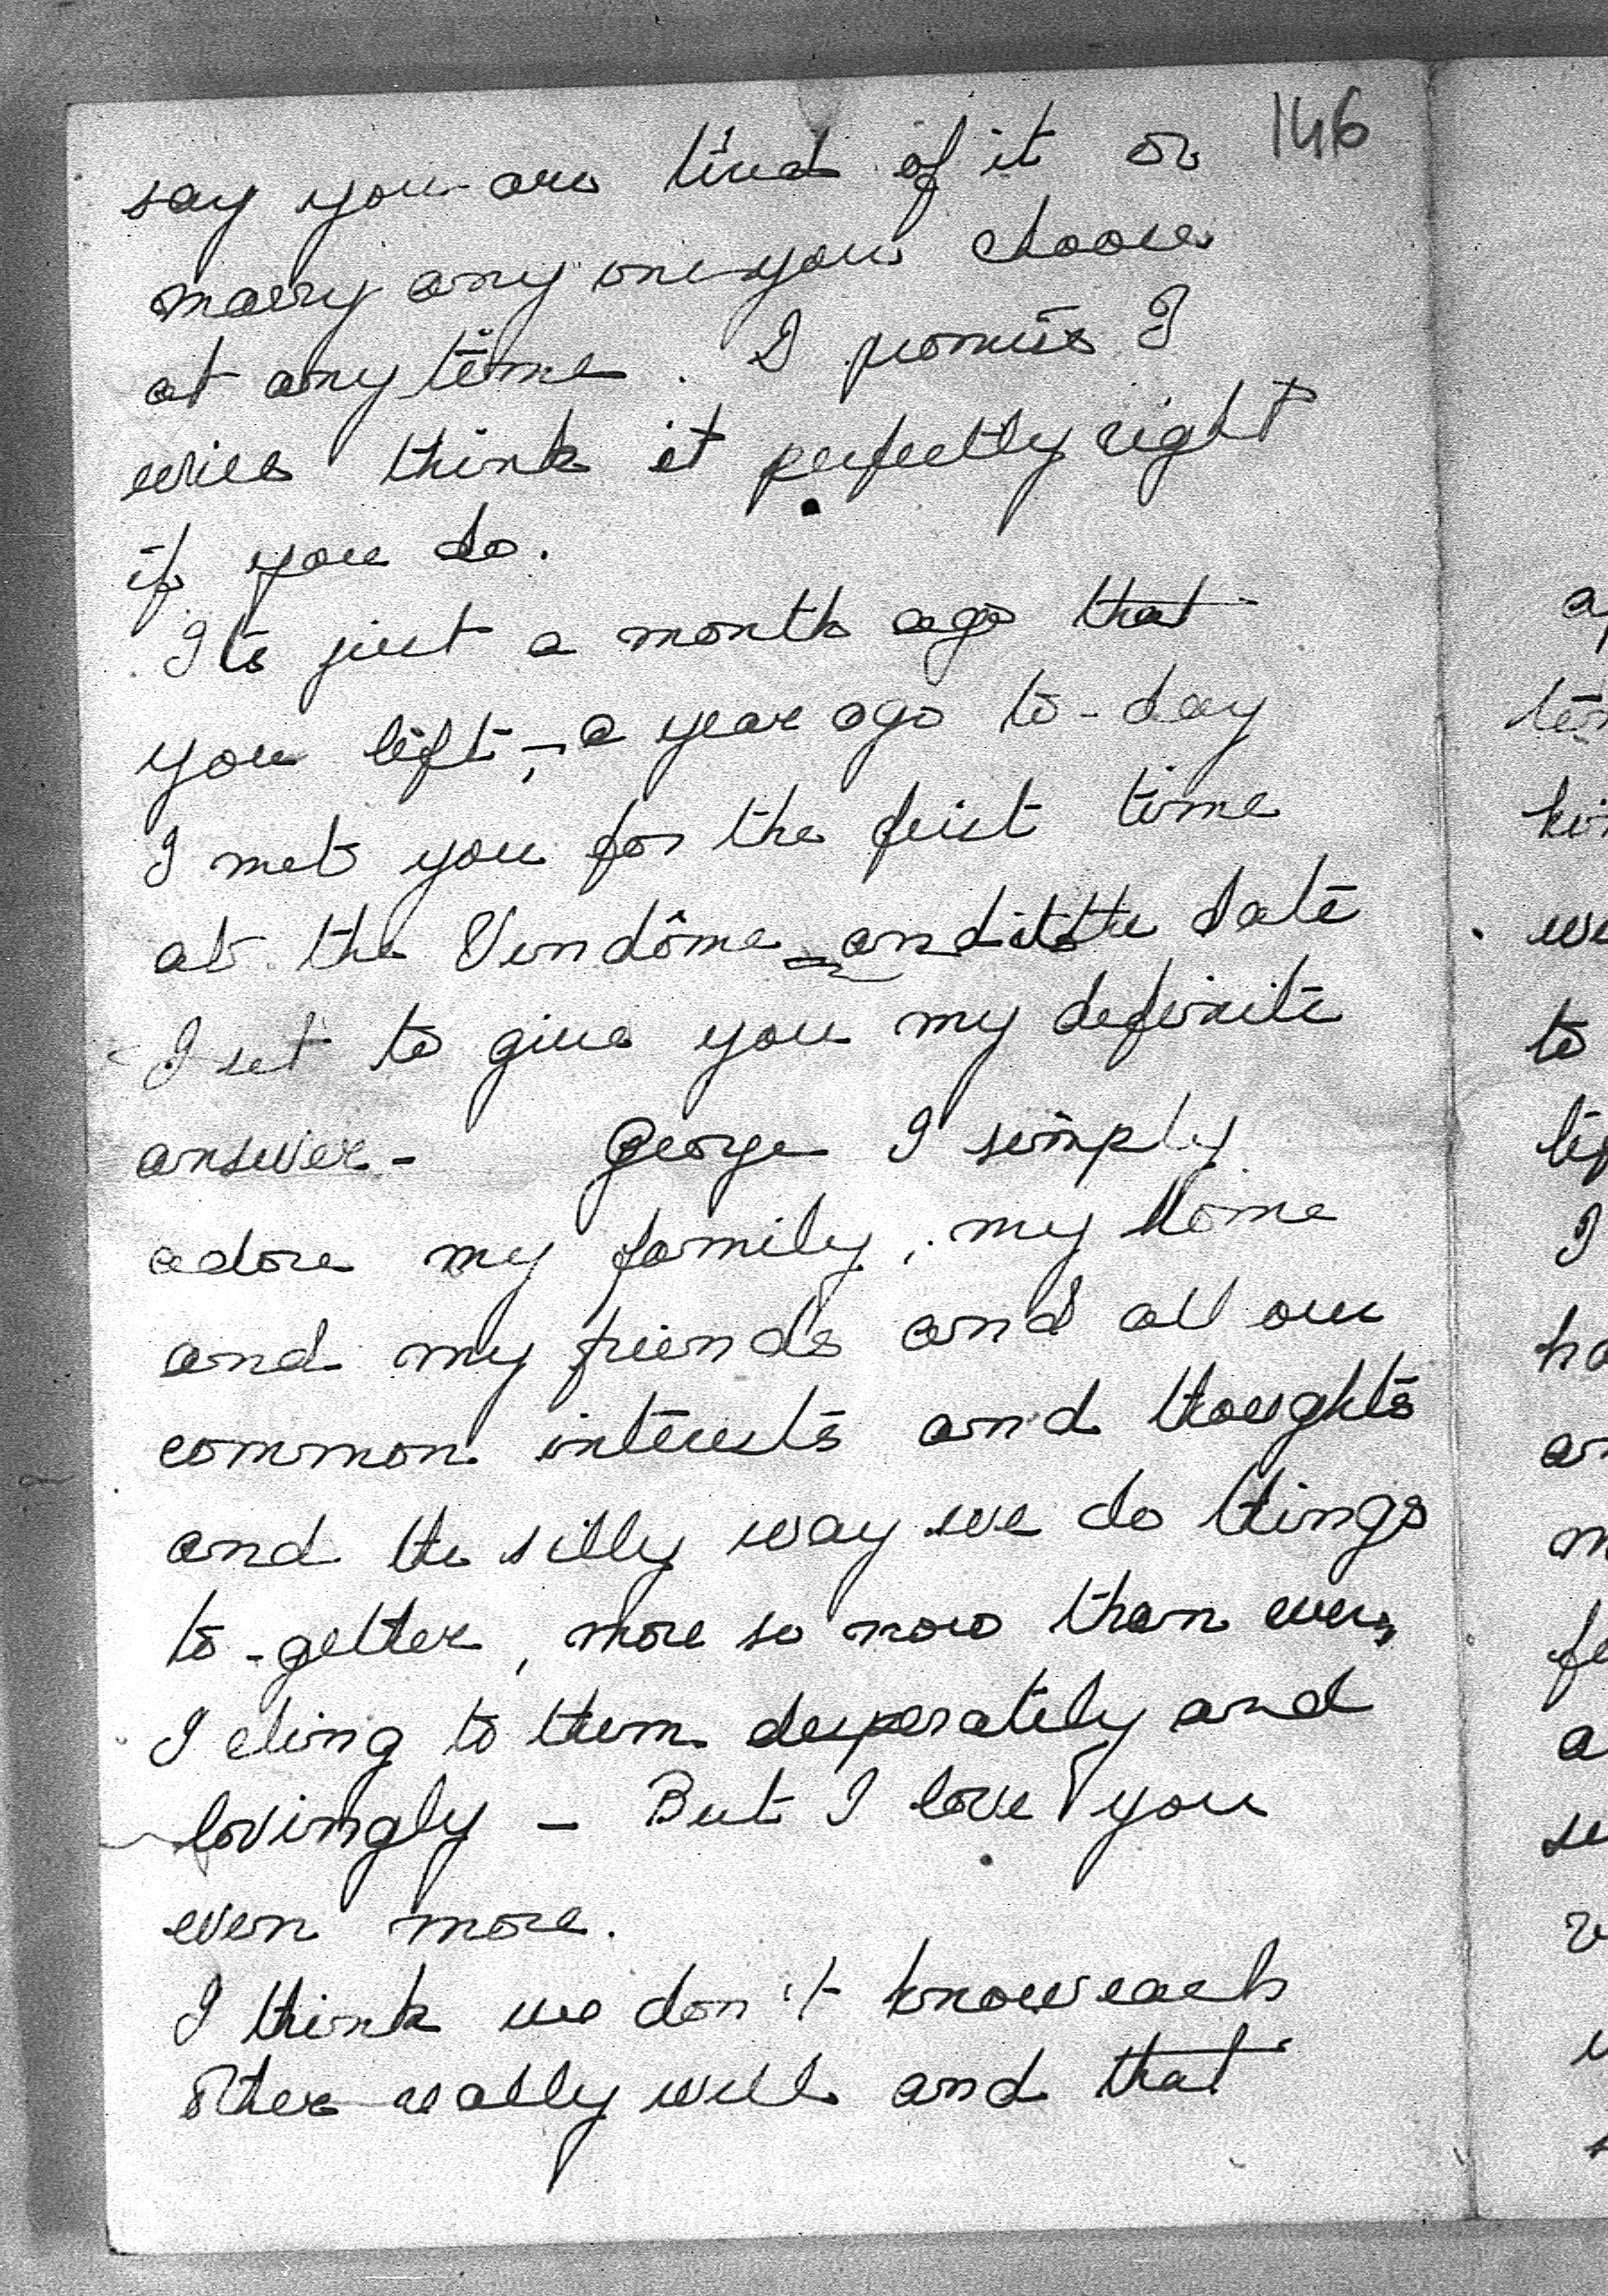 146
say you are tired of it or
marry any one you choose
at any time. I promis I
will think it perfectly right
if you do.
Its just a month ago that
you left, - a year ago to-day
I met you for the first time
at the Vendôme - and its the date
I set to give you my definite
answer - George I simply
adore my family, my home
and my friends and all our
common interests and thoughts
and the silly way we do things
to-gether, more so now than ever,
I cling to them desperately and
lovingly - But I love you
even more.
I think we don't know each
other really well and that